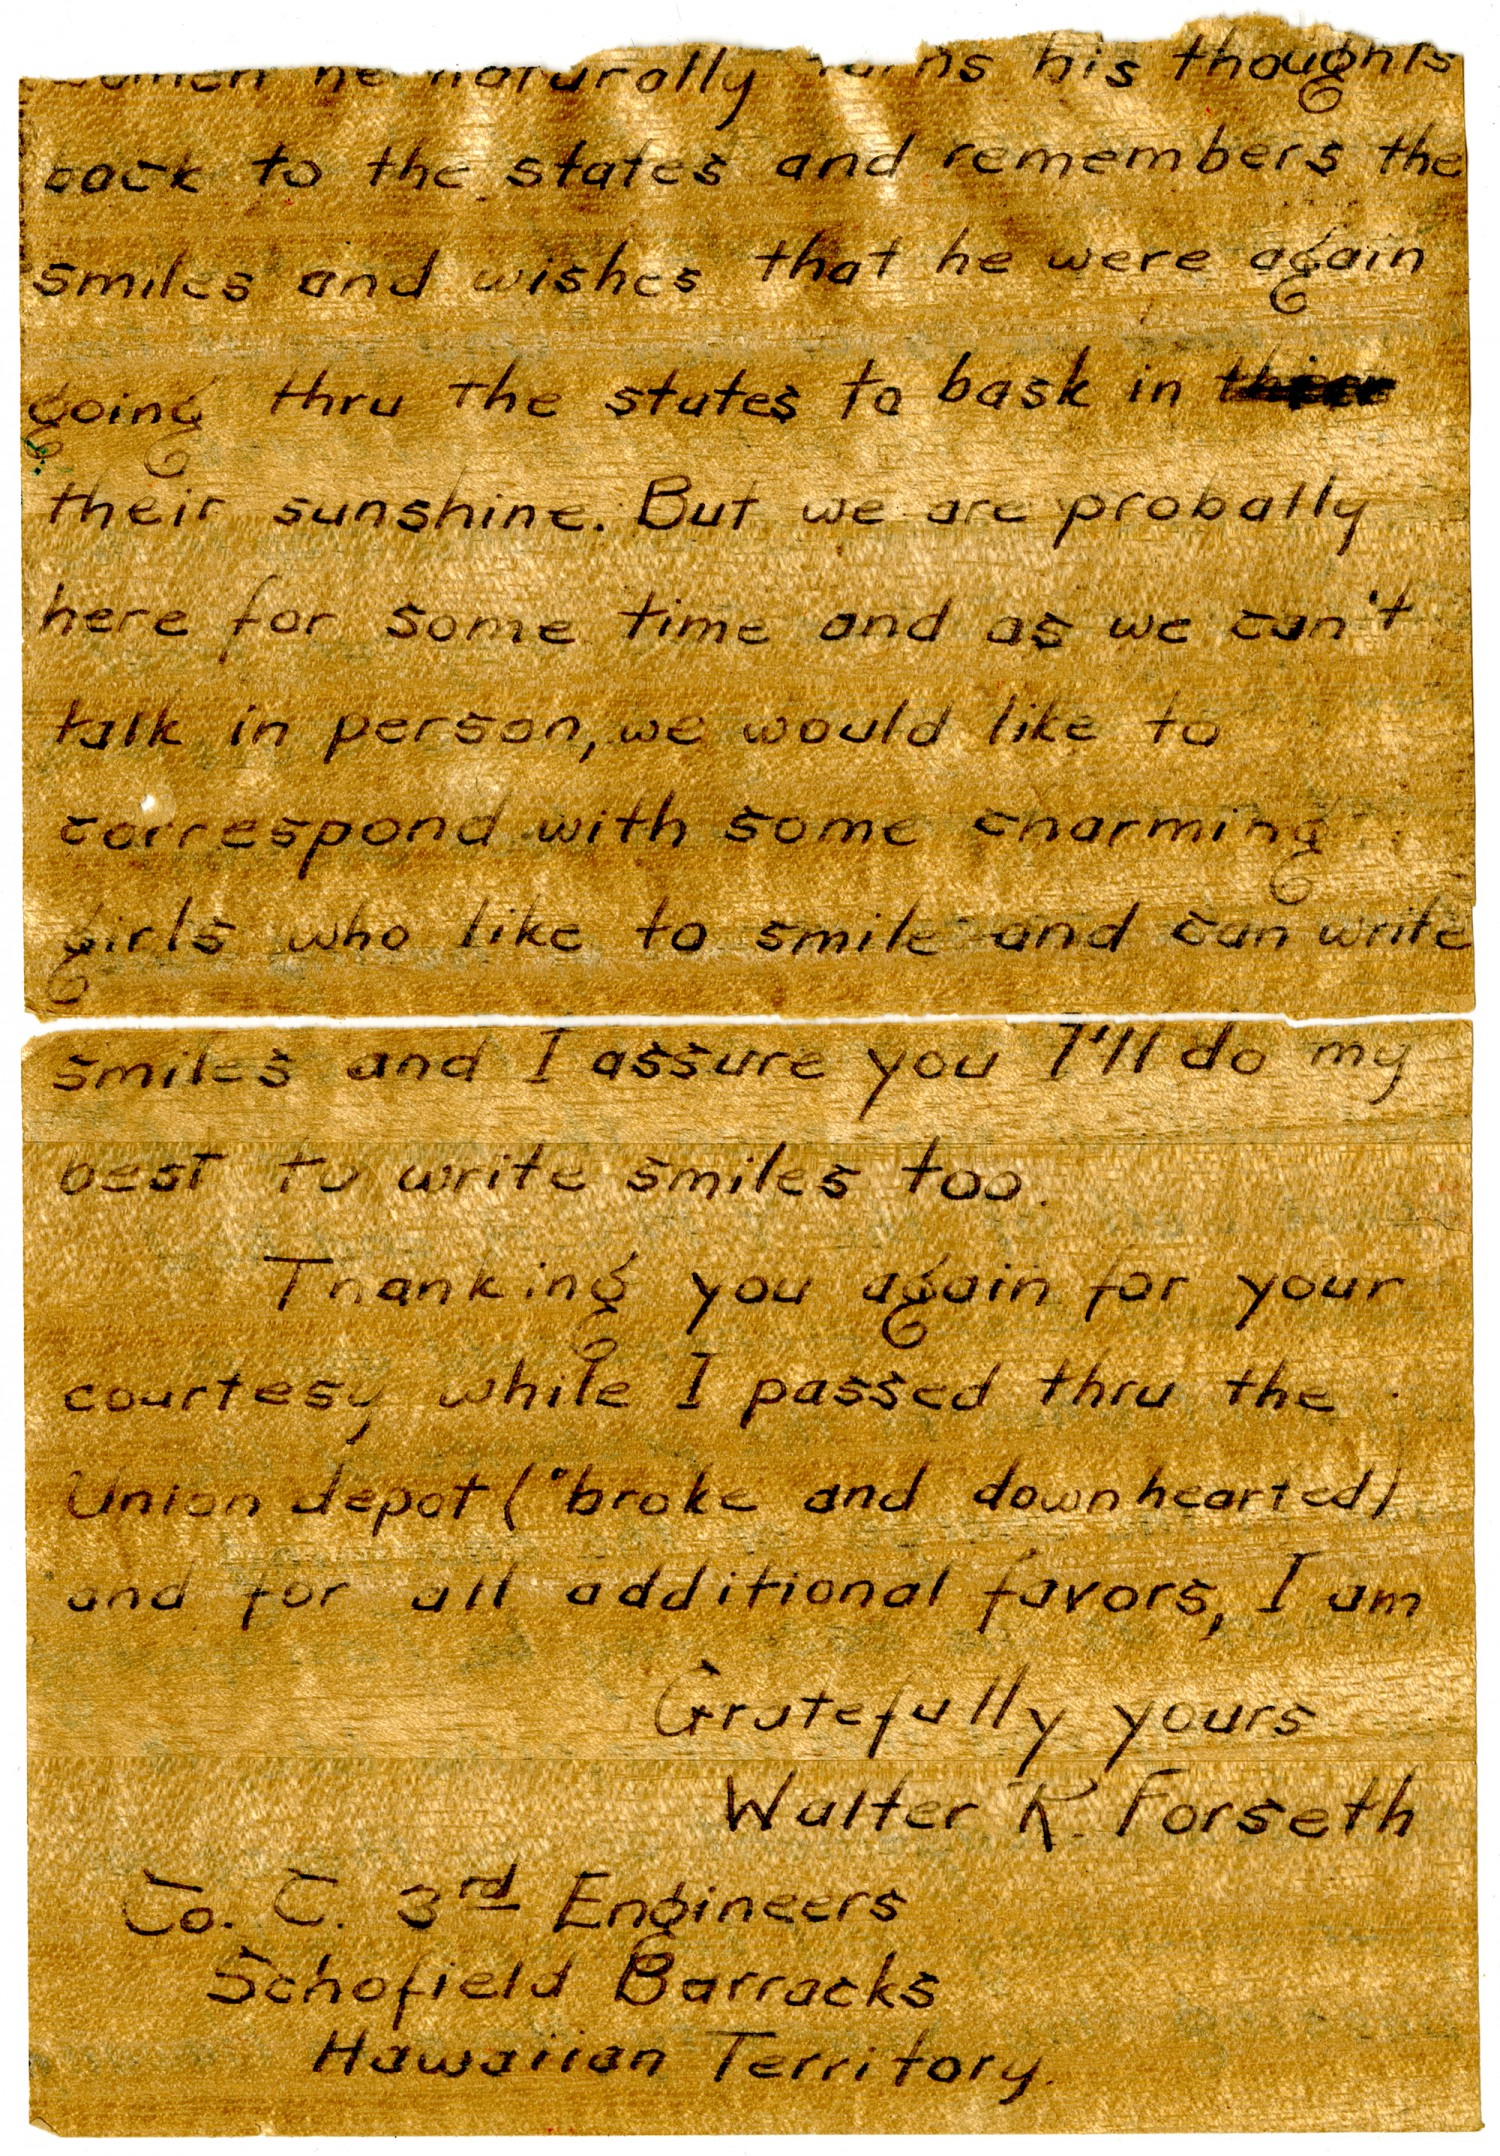 he naturally turns his thoughts
back to the states and remembers the
smiles and wishes that he were again
going thru the states to bask in
their sunshine. But we are probally
here for some time and as we can't
talk in person, we would like to
correspond with some charming
girls who like to smile and can write
smiles and I assure you I'll do my
best to write smiles too.
Thanking you again for your
courtesy while I passed thru the
Union depot ("broke and downhearted)
and for all additional favors, I am
Gratefully yours
Walter R. Forseth
Co. C. 3rd Engineers
Schofield Barracks
Hawaiian Territory.